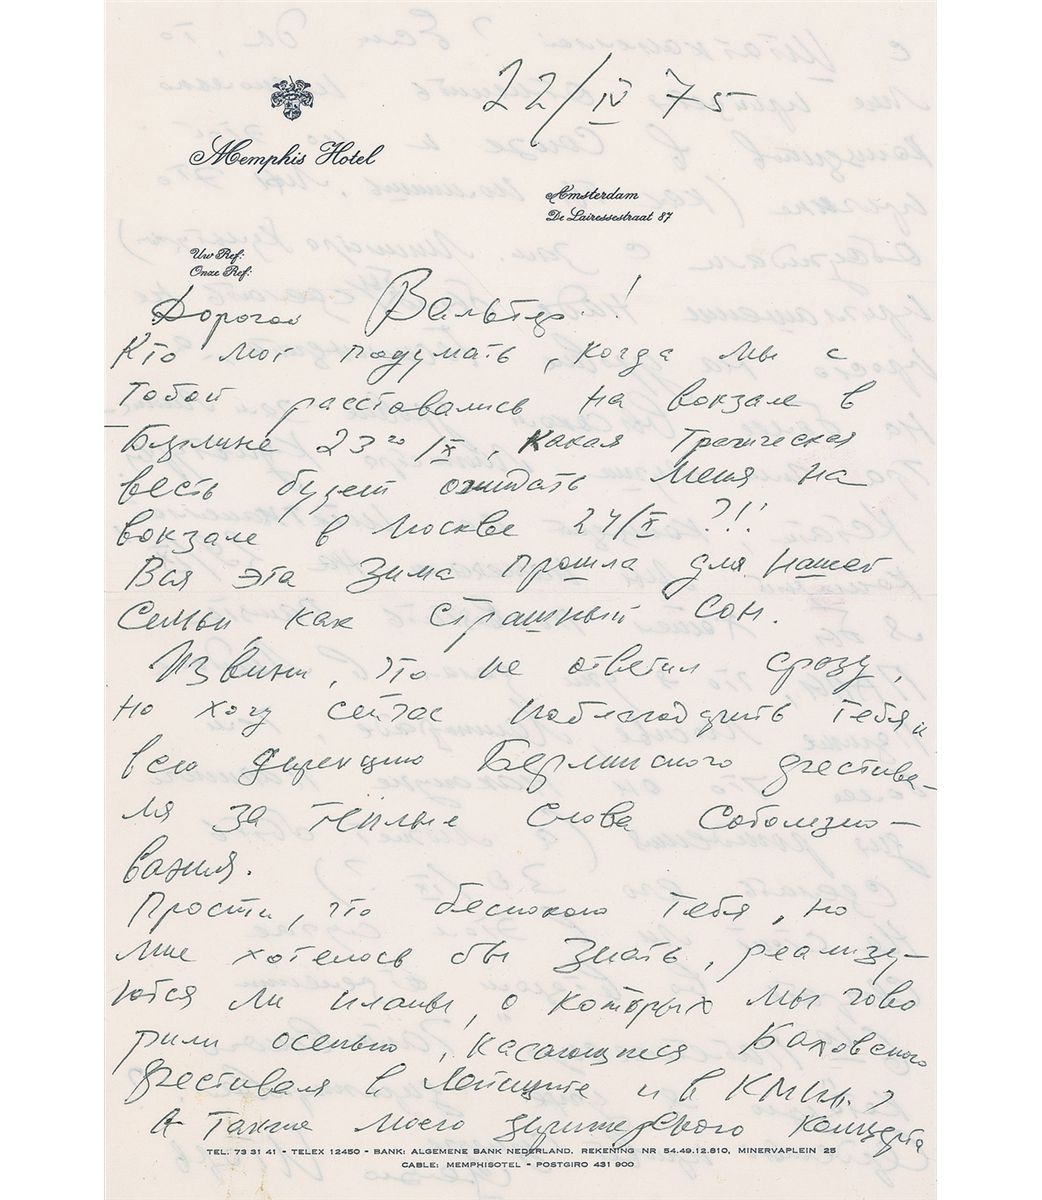 22/IV 75
Memphis Hotel
Amsterdam
De Lairessestraat 87
Uw Ref:
Onze Ref:
Дорогой Вальтер!
Кто мог подумать, когда мы с
тобой расставались на вокзале в
Берлине 23²⁰/IX, какая трагическая
весть будет ожидать меня на
вокзале в Москве 24/X ?!!
Вся эта зима прошла для нашей
семьи как страшный сон.
Извини, что не ответил сразу,
но хочу сейчас поблагодарить тебя и
всю дирекцию Берлинского фестива-
ля за тёплые слова соболезно-
вания.
Прости, что беспокою тебя, но
мне хотелось бы знать, реализу-
ются ли планы, о которых мы гово
рили осенью, касающиеся Баховского
фестиваля в Лейпциге и в
А также моего дирижерского концерта
TEL. 73 31 41 - TELEX 12450 - BANK: ALGEMENE BANK NEDERLAND. REKENING NR 54.49.12.810, MINERVAPLEIN 25
CABLE: MEMPHISOTEL - POSTGIRO 431 900